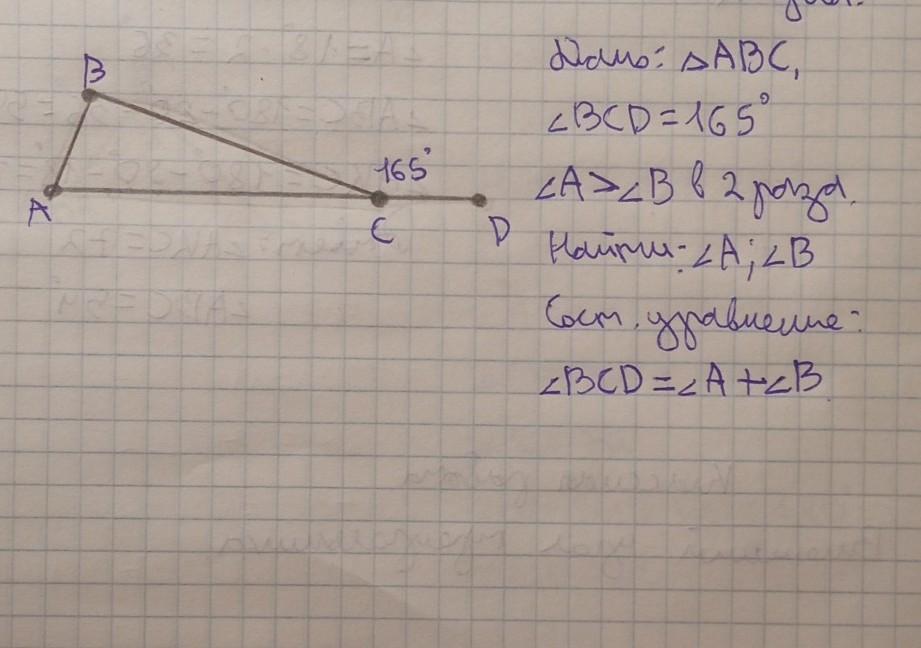 B
165°
A
C
D
Дано: △ABC,
∠BCD = 165°
∠A > ∠B в 2 раза.
Найти: ∠A; ∠B
Сост. уравнение:
∠BCD = ∠A + ∠B